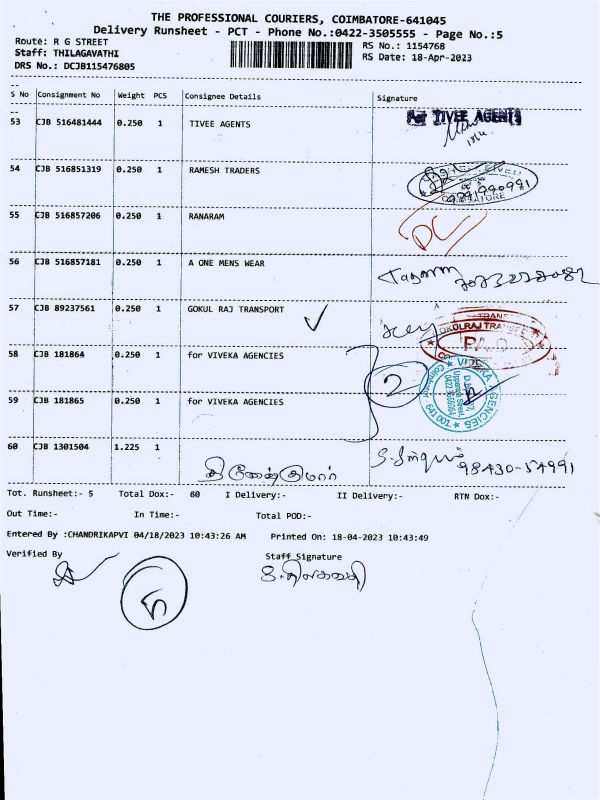 THE PROFESSIONAL COURIERS, COIMBATORE-641045
Delivery Runsheet - PCT - Phone No.:0422-3505555 - Page No.:5
Route: R G STREET
RS No.: 1154768
Staff: THILAGAVATHI
RS Date: 18-Apr-2023
DRS No.: DCJB115476805
S No Consignment No Weight PCS Consignee Details Signature
53 CJB 516481444 0.250 1 TIVEE AGENTS For TIVEE AGENTS
54 CJB 516851319 0.250 1 RAMESH TRADERS
55 CJB 516857206 0.250 1 RANARAM DC
56 CJB 516857181 0.250 1 A ONE MENS WEAR
57 CJB 89237561 0.250 1 GOKUL RAJ TRANSPORT
58 CJB 181864 0.250 1 for VIVEKA AGENCIES
2
VIVEKA AGENCIES
59 CJB 181865 0.250 1 for VIVEKA AGENCIES
60 CJB 1301504 1.225 1 98430-54991
Tot. Runsheet:- 5 Total Dox:- 60 I Delivery:- II Delivery:- RTN Dox:-
Out Time:- In Time:- Total POD:-
Entered By :CHANDRIKAPVI 04/18/2023 10:43:26 AM Printed On: 18-04-2023 10:43:49
Verified By Staff Signature